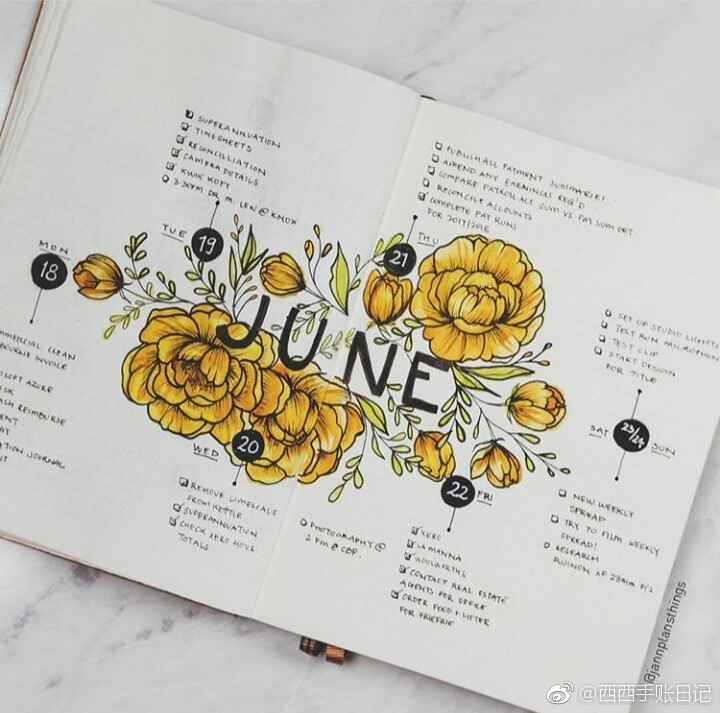 MON
18
COMMERCIAL CLEAN
INVOICE
AZURE
REIMBURSE
JOURNAL
SUPERANNUATION
TIMESHEETS
RECONCILLIATION
CAMERA DETAILS
KWIK KOPY
3:30PM DR M. LEW @ KNOX
TUE
19
JUNE
WED
20
REMOVE LIMESCALE
FROM KETTLE
SUPERANNUATION
CHECK XERO HOUR
TOTALS
PUBLISH ALL PAYMENT SUMMARIES!
AMEND ANY EARNINGS REQ'D
COMPARE PAYROLL ACT. SUM VS PAY SUM DET.
RECONCILE ACCOUNTS
COMPLETE PAY RUNS
FOR 2017/2018
21
THU
PHOTOGRAPHY @
2 PM @ CBP.
22
FRI
XERO
LA MANNA
WOOLWORTHS
CONTACT REAL ESTATE
AGENTS FOR OFFICE
ORDER FOOD + LITTER
FOR
SET UP STUDIO LIGHTS
TEST RUN MICROPHONE
TEST CLIP
START DESIGN
FOR TITLE
SAT
23/24
SUN
NEW WEEKLY
SPREAD
TRY TO FILM WEEKLY
SPREAD!
RESEARCH
FUJINON XF 23mm F/2
@jannplansthings
@西西手账日记